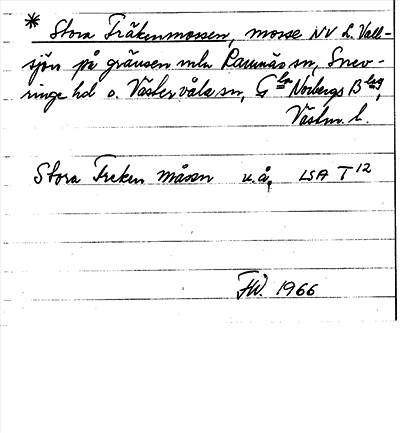 * Stora Fräkenmossen, mosse NV L. Vall-
sjön på gränsen mln Ramnäs sn, Snev-
ringe hd o. Västervåla sn, Gla Norbergs Blag,
Västm. l.
Stora Freken måsen u.å., LSA T 12
FW. 1966